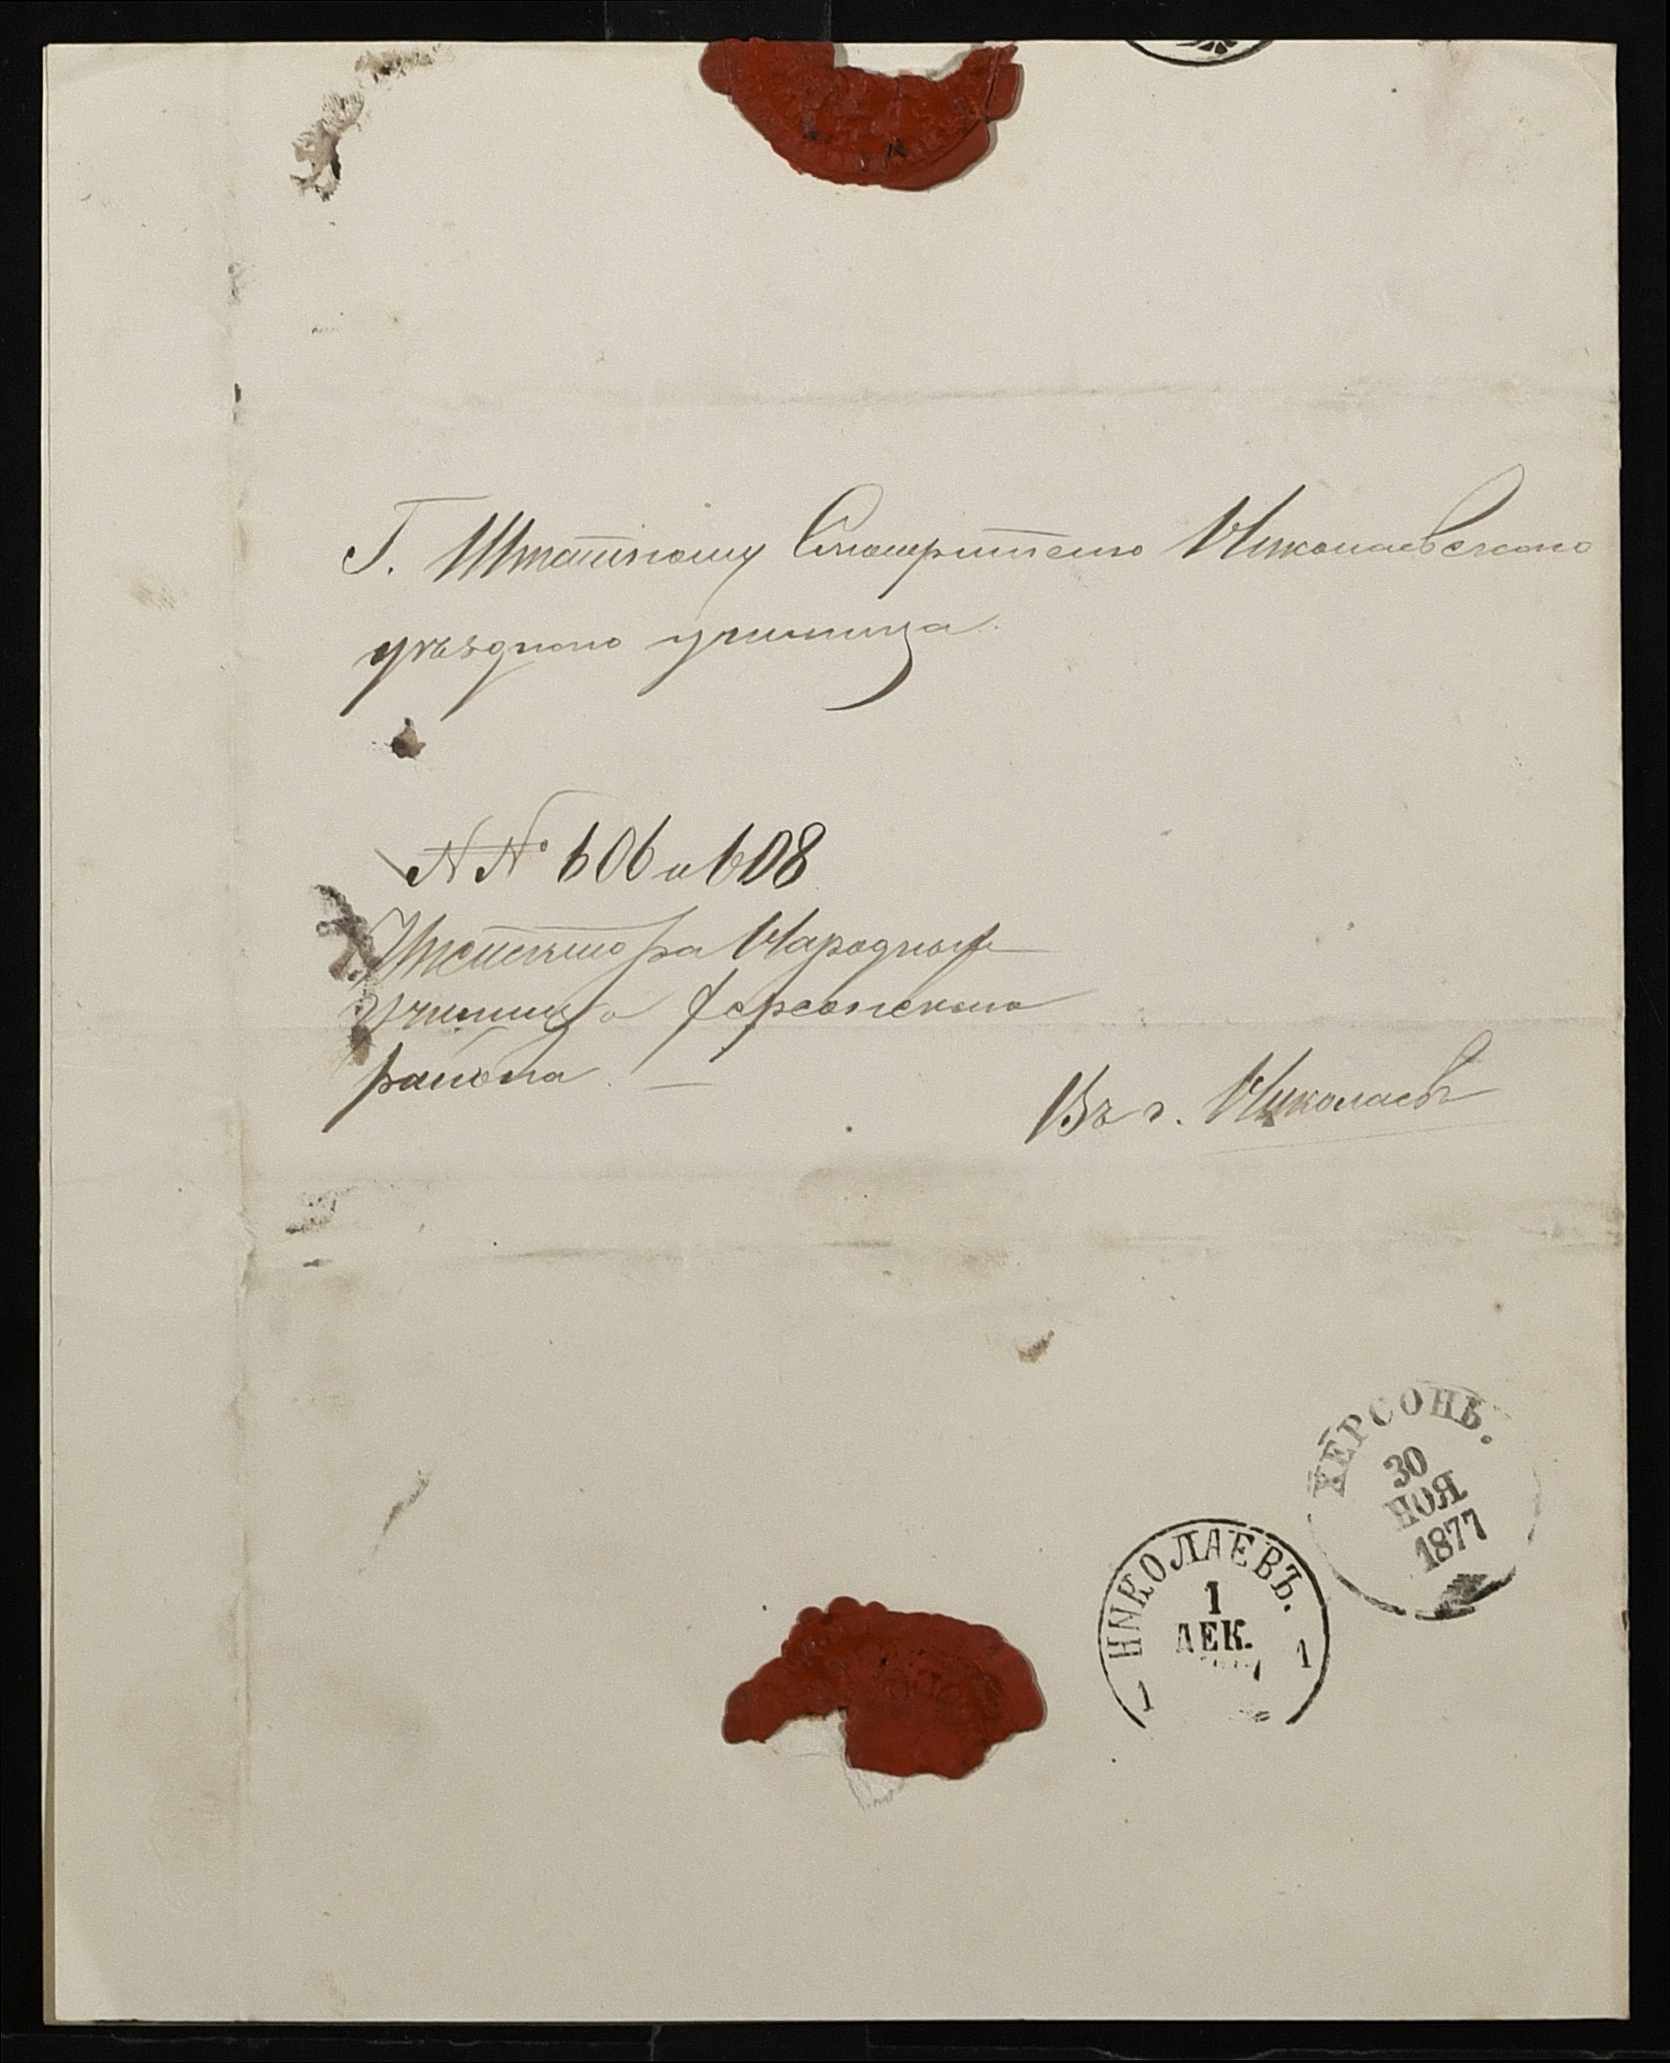 Г. Штатному Смотрителю Николаевскаго
уѣзднаго училища.
NN° 606 и 608
Инспектора Народныхъ
Училищъ Херсонскаго
района. —
Въ г. Николаевъ
ХЕРСОНЪ.
30
НОЯ
1877
НИКОЛАЕВЪ.
1
ДЕК.
1 1